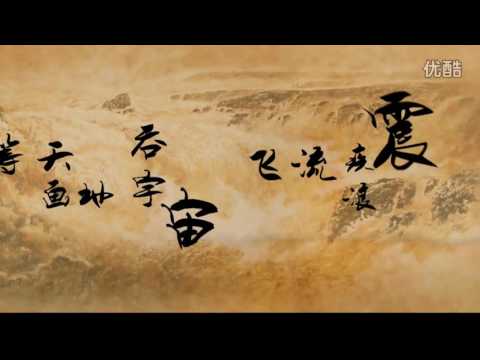 优酷
震
疾浪
流
飞
宙
吞宇
地
天画
等